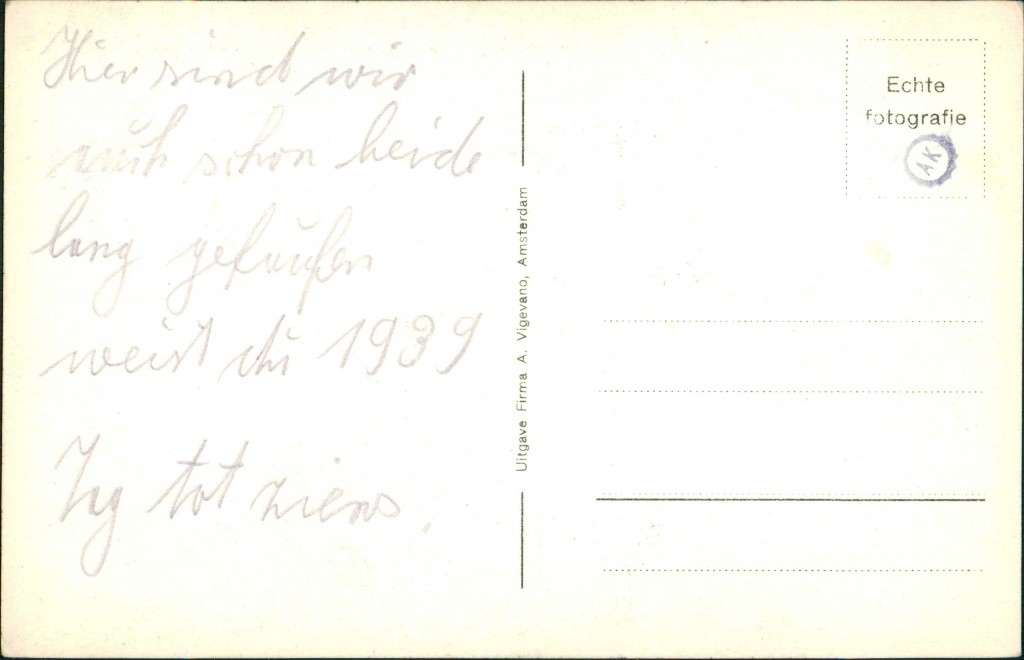 Hier sind wir
auch schon beide
lang gelaufen
weist du 1939
Zeg tot ziens.
Uitgave Firma A. Vigevano, Amsterdam
Echte
fotografie
AK